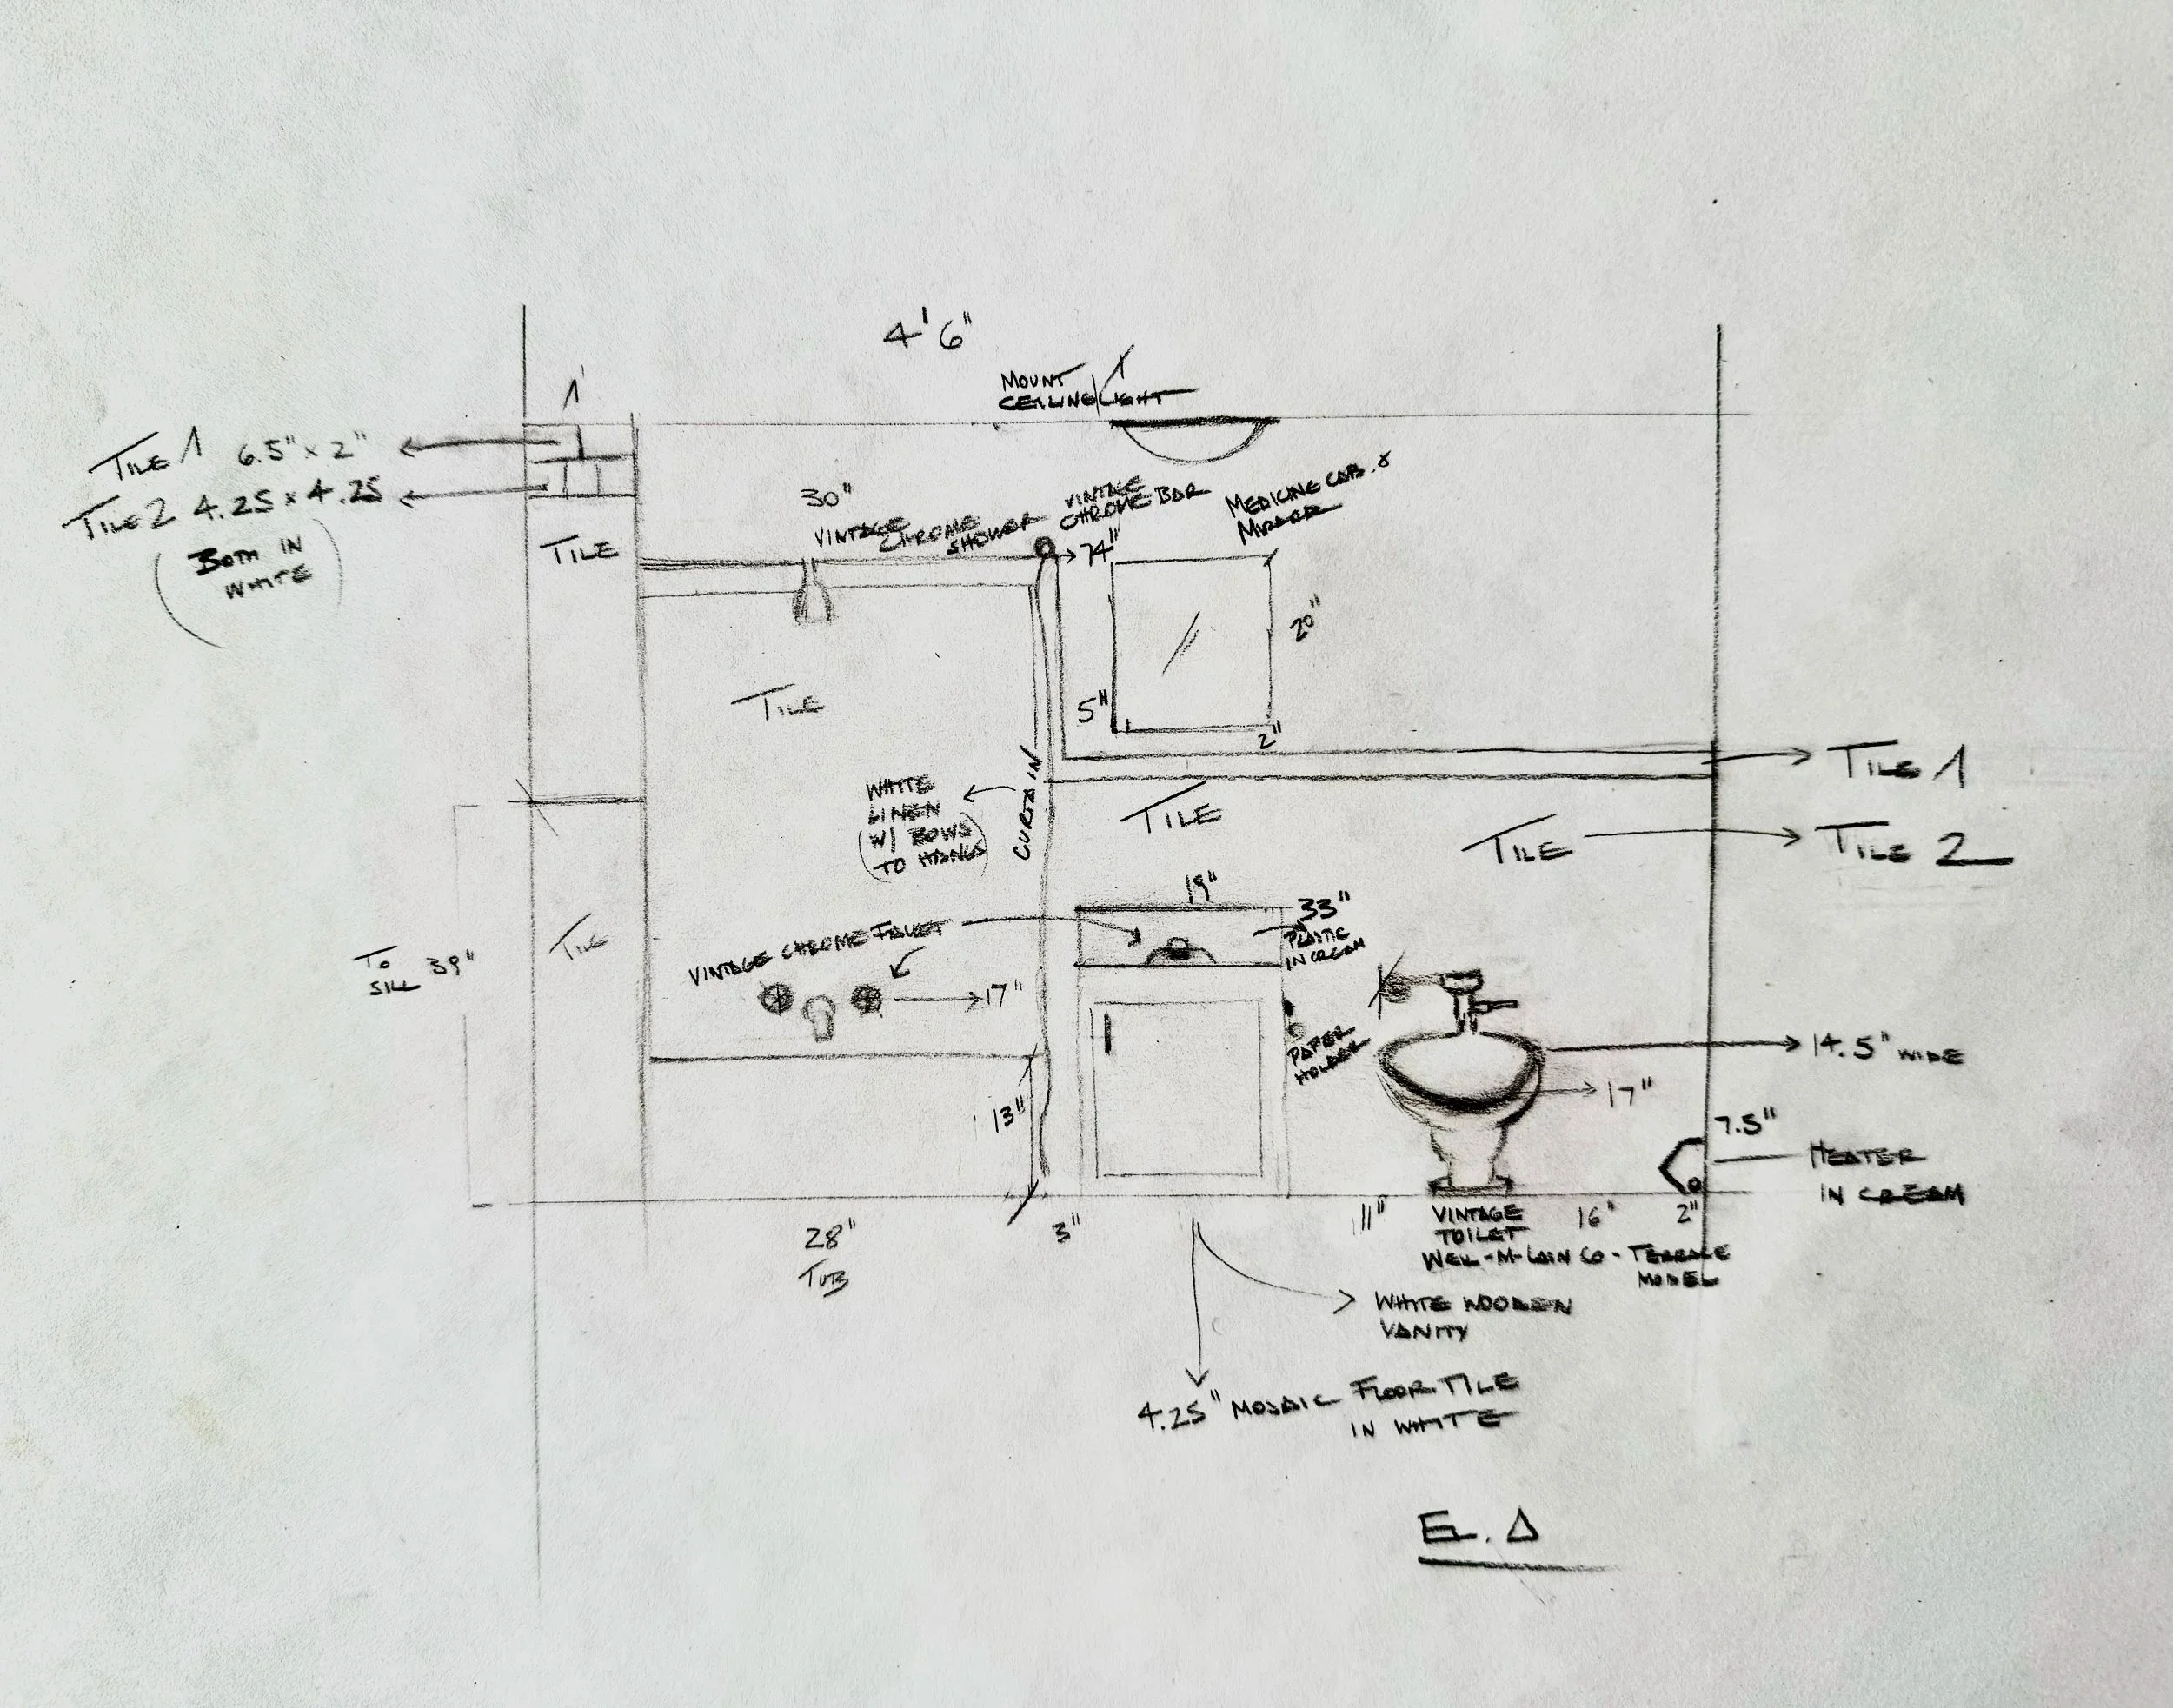 4'6"
MOUNT
CEILING LIGHT
1'
TILE 1 6.5" x 2"
TILE 2 4.25 x 4.25
(BOTH IN
WHITE)
TILE
30"
VINTAGE
CHROME
SHOWER
VINTAGE
CHROME BAR
74"
MEDICINE CAB. &
MIRROR
20"
5"
2"
TILE
TILE 1
WHITE
LINEN
(W/ BOWS
TO HANG)
CURTAIN
TILE
TILE
TILE 2
TO
SILL 39"
TILE
VINTAGE CHROME FAUCET
17"
19"
33"
PLASTIC
IN CREAM
PAPER
HOLDER
14.5" WIDE
17"
13"
7.5"
HEATER
IN CREAM
28"
TUB
3"
11"
VINTAGE
TOILET
WEIL-M-LAIN CO - TERRACE
MODEL
16"
2"
WHITE WOODEN
VANITY
4.25" MOSAIC FLOOR TILE
IN WHITE
EL. A